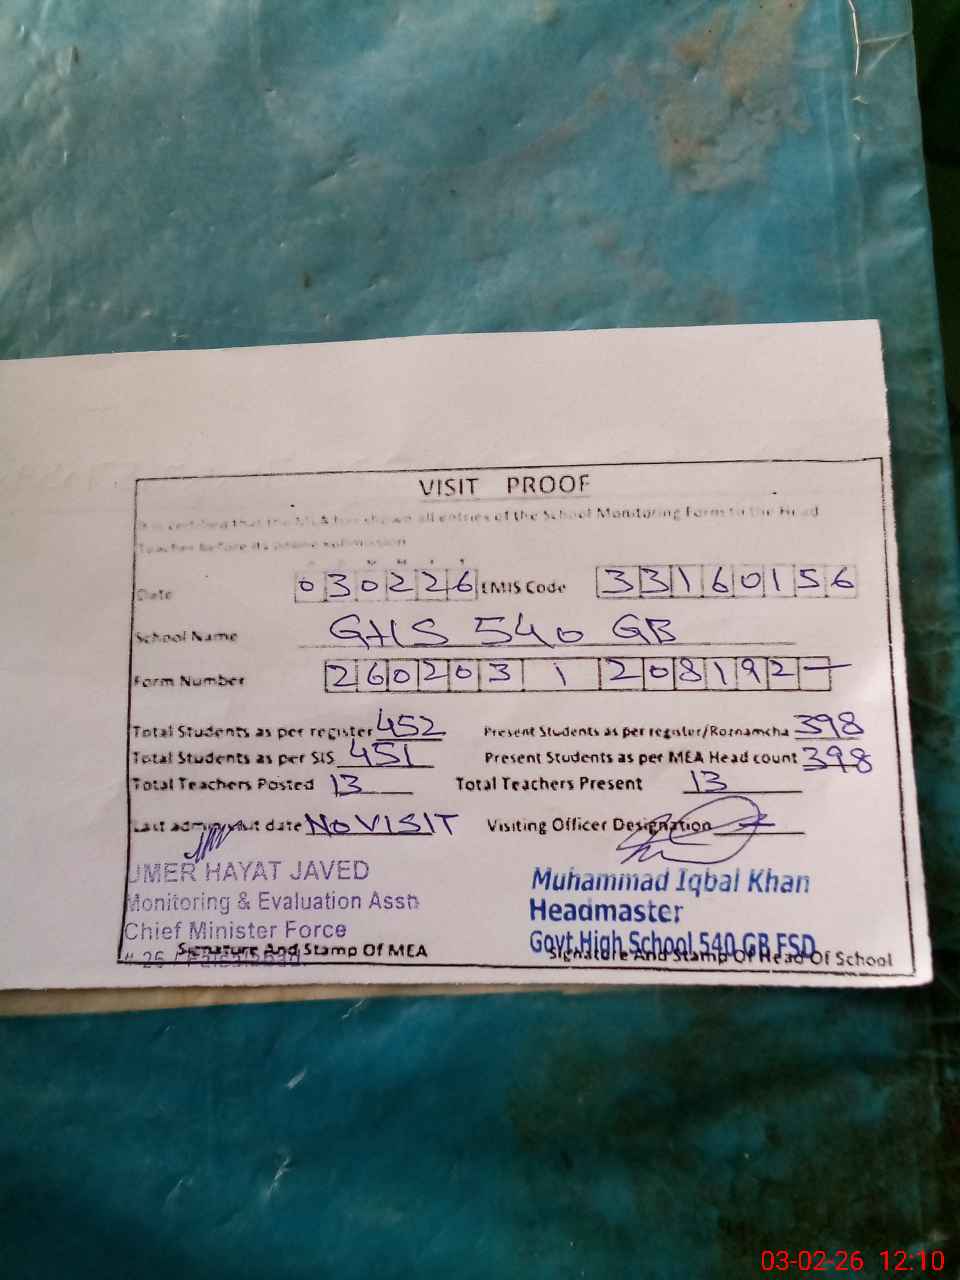 VISIT PROOF
It is certified that the MEA has shown all entries of the School Monitoring Form to the Head
Teacher before its online submission
Date 030226 EMIS Code 33160156
School Name GHS 540 GB
Form Number 260203 1 208192-
Total Students as per register 452 Present Students as per register/Roznamcha 398
Total Students as per SIS 451 Present Students as per MEA Head count 398
Total Teachers Posted 13 Total Teachers Present 13
Last admin visit date NO VISIT Visiting Officer Designation
UMER HAYAT JAVED
Monitoring & Evaluation Asstt
Chief Minister Force
Signature And Stamp Of MEA
Muhammad Iqbal Khan
Headmaster
Govt.High School 540 GB FSD
Signature And Stamp Of Head Of School
03-02-26 12:10